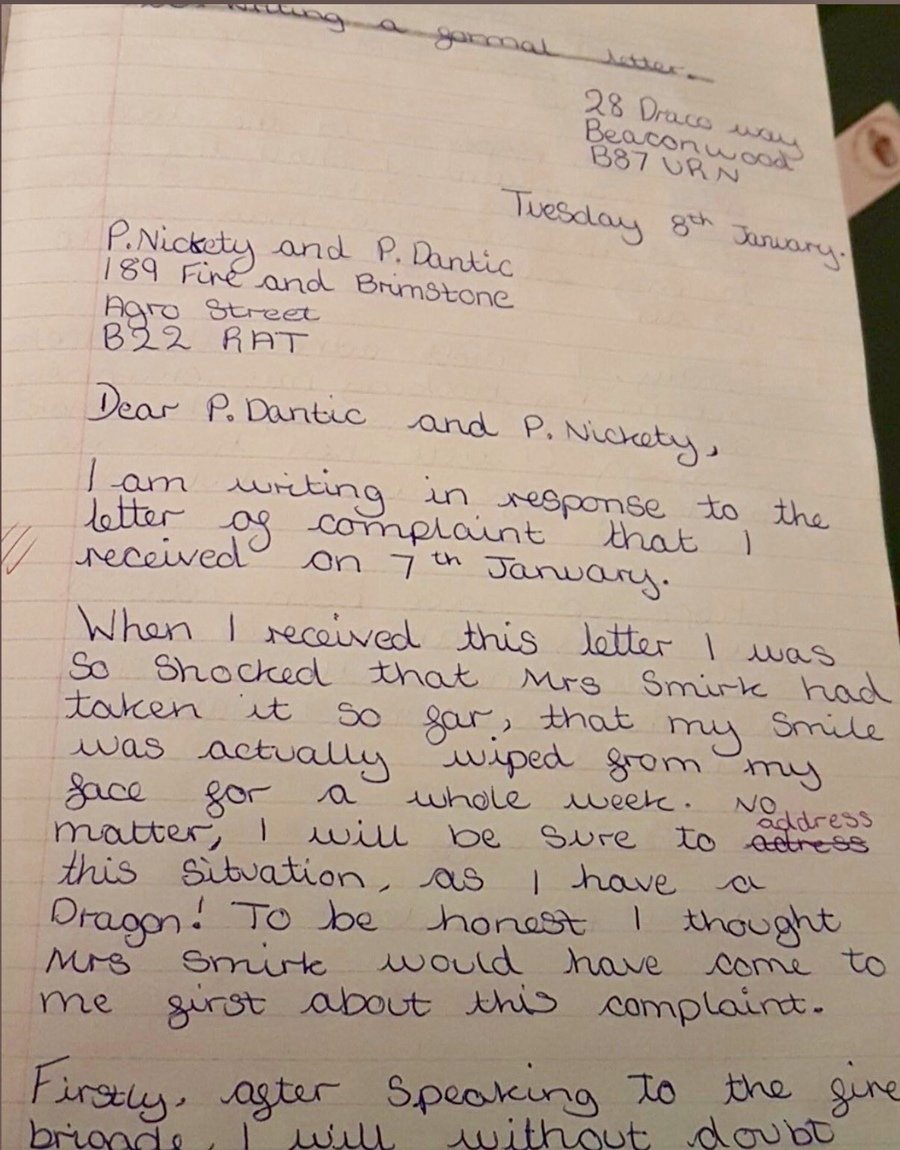 writing a formal letter.
28 Draco way
Beaconwood
B87 URN
Tuesday 8th January.
P.Nickety and P. Dantic
189 Fire and Brimstone
Agro Street
B22 RAT
Dear P. Dantic and P. Nickety,
I am writing in response to the
letter of complaint that I
received on 7th January.
When I received this letter I was
so shocked that Mrs Smirk had
taken it so far, that my smile
was actually wiped from my
face for a whole week. No
matter, I will be sure to address adress
this situation, as I have a
Dragon! To be honest I thought
Mrs Smirk would have come to
me first about this complaint.
Firstly, after speaking to the fire
brigade, I will without doubt